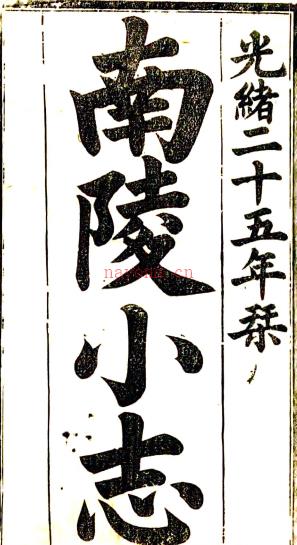 光緒二十五年栞
南陵小志